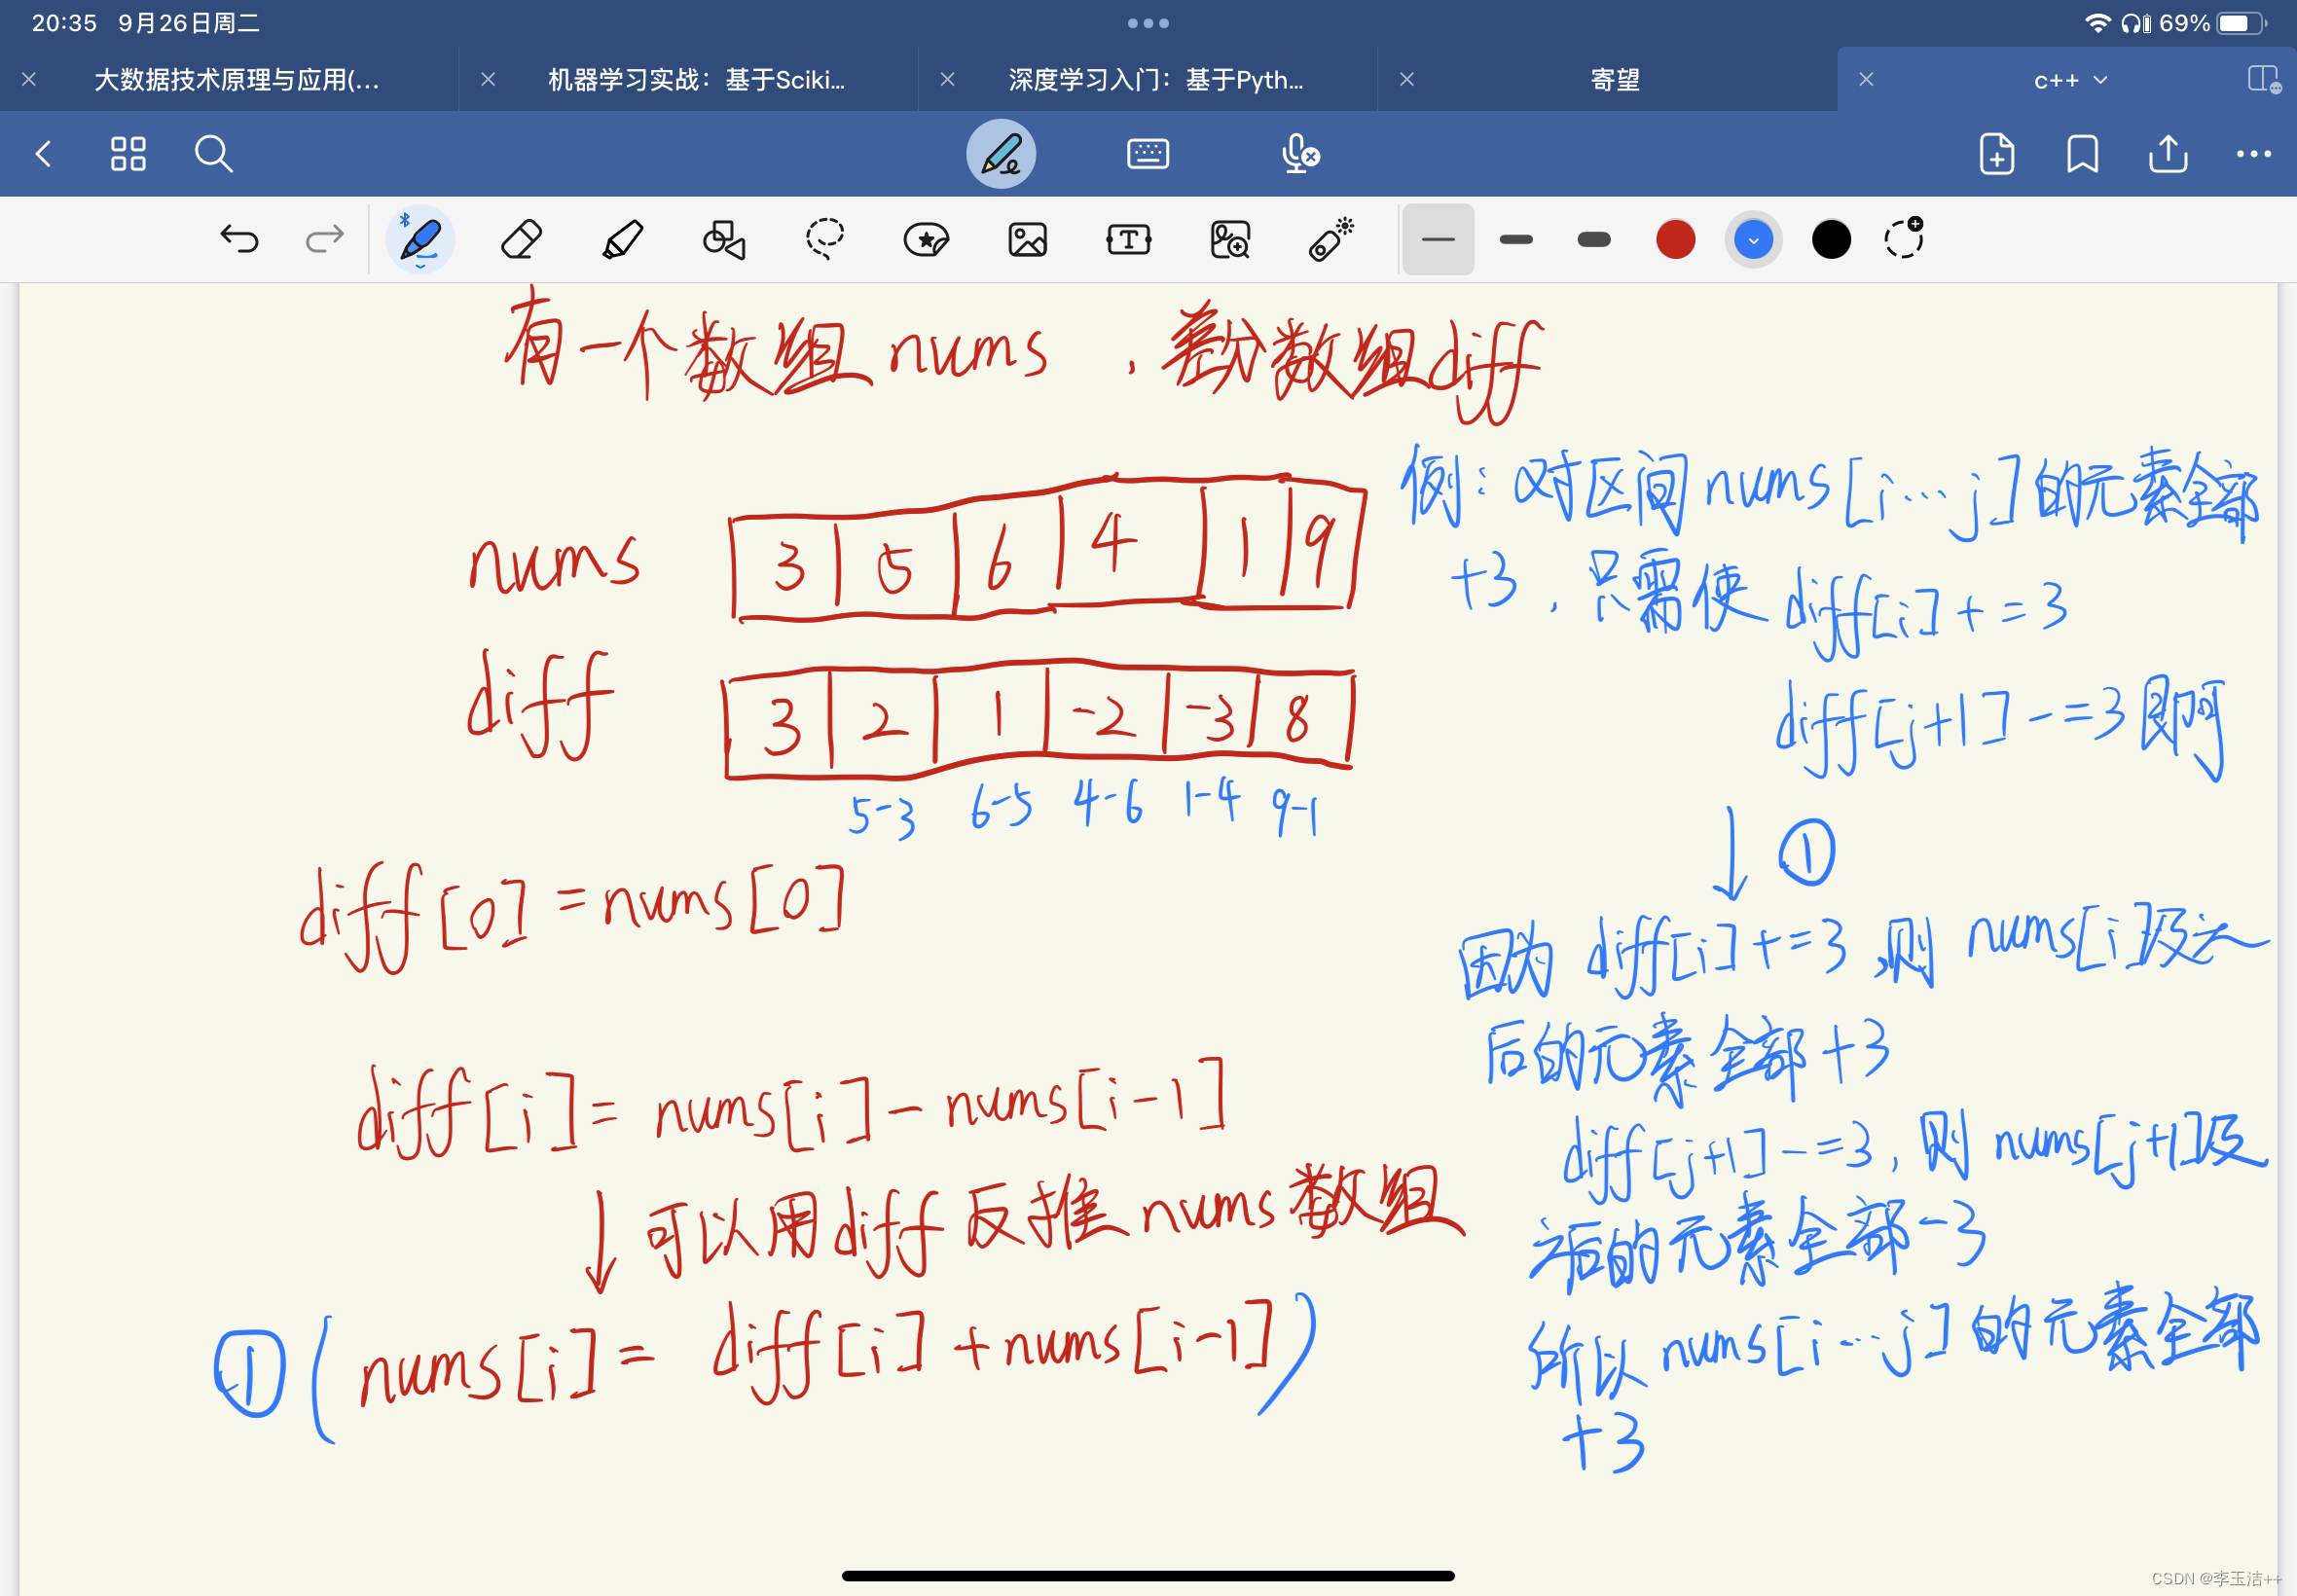 20:35 9月26日周二
69%
大数据技术原理与应用(...
机器学习实战：基于Sciki...
深度学习入门：基于Pyth...
寄望
c++
有一个数组 nums ，差分数组diff
nums 3 5 6 4 1 9
diff 3 2 1 -2 -3 8
5-3 6-5 4-6 1-4 9-1
diff[0] = nums[0]
diff[i] = nums[i] - nums[i-1]
↓ 可以用diff 反推 nums 数组
① ( nums[i] = diff[i] + nums[i-1] )
例：对区间 nums [i...j] 的元素全部
+3 ，只需使 diff[i] += 3
diff[j+1] -= 3 即可
↓ ①
因为 diff[i] += 3 ,则 nums[i]及之
后的元素全部 +3
diff[j+1] -= 3 , 则 nums[j+1]及
之后的元素全部 -3
所以 nums[i...j] 的元素全部
+3
CSDN @李玉洁++